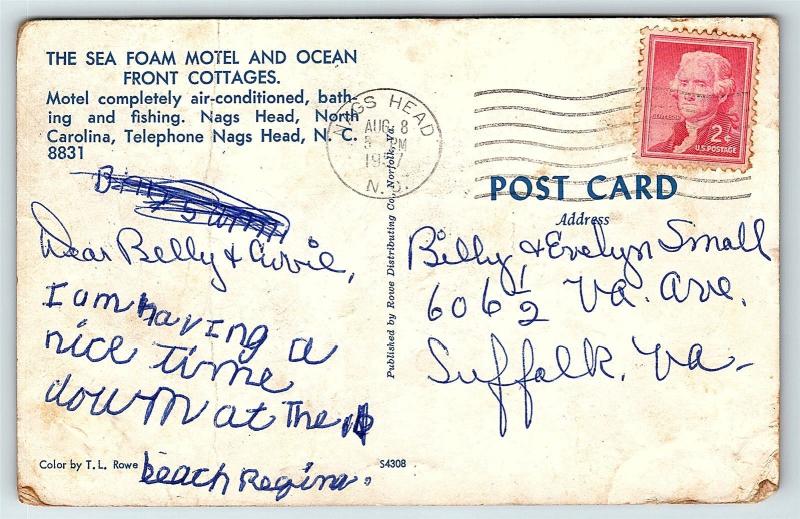 THE SEA FOAM MOTEL AND OCEAN
FRONT COTTAGES.
Motel completely air-conditioned, bath-
ing and fishing. Nags Head, North
Carolina, Telephone Nags Head, N. C.
8831
Dear Billy + Arvie,
I am having a
nice time
down at the
beach Regina.
Color by T. L. Rowe
S4308
Published by Rowe Distributing Co., Norfolk, Va.
NAGS HEAD
AUG 8
PM
1957
N. C.
2¢
U.S. POSTAGE
POST CARD
Address
Billy + Evelyn Small
606 1/2 Va. Ave.
Suffolk, Va-